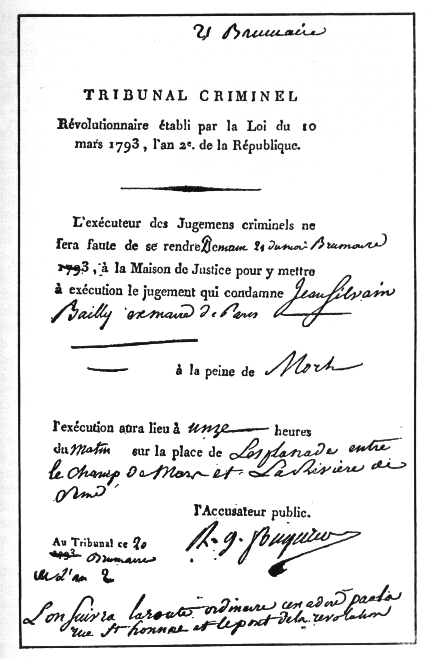 21 Brumaire
TRIBUNAL CRIMINEL
Révolutionnaire établi par la Loi du 10
mars 1793, l'an 2e. de la République.
L'exécuteur des Jugemens criminels ne
fera faute de se rendre Demain 21 du mois Brumaire
1793, à la Maison de Justice pour y mettre
à exécution le jugement qui condamne Jean Silvain
Bailly ex maire de Paris
à la peine de Mort
l'exécution aura lieu à unze heures
du matin sur la place de L'esplanade entre
le champ de Mars et La Rivière de
l'accusateur public.
Au Tribunal ce 20
1793 Brumaire
L'an 2
L'on suivra la route ordinaire par la
rue St honnoré et le pont de la révolution